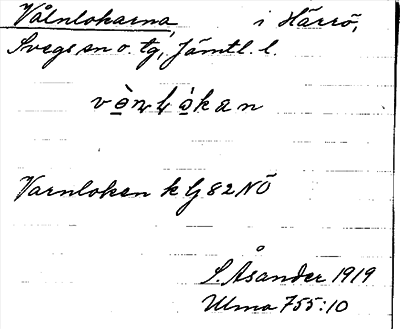 Vålnlokarna, i Härrö,
Svegs sn o. tg, Jämtl. l.
Varnloken k lj 82 NÖ
S. Åsander 1919
Ulma 755:10